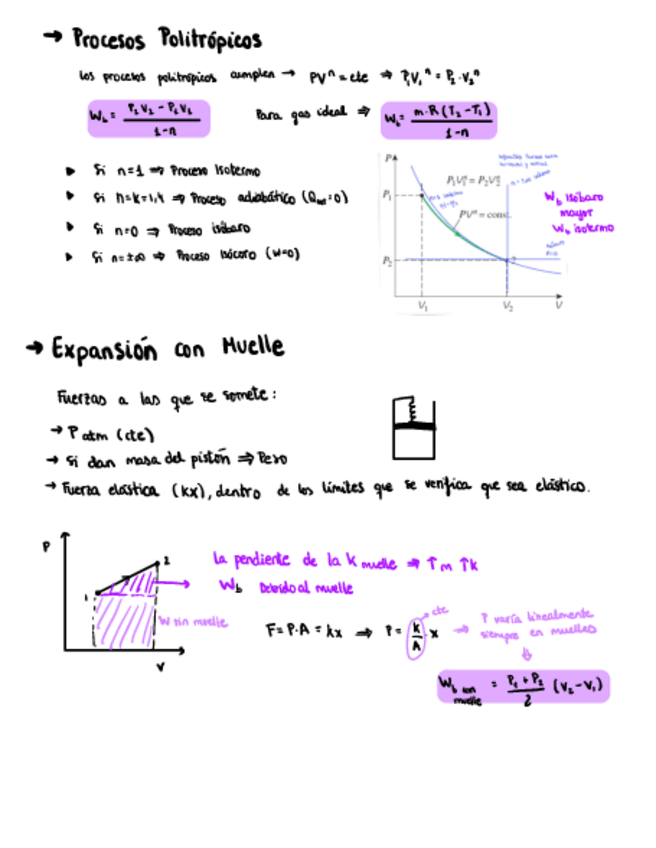 → Procesos Politrópicos
Los procesos politrópicos cumplen → PVⁿ = cte ⇒ P₁V₁ⁿ = P₂·V₂ⁿ
W_b = (P₂V₂ − P₁V₁)/(1−n) Para gas ideal ⇒ W_b = m·R(T₂−T₁)/(1−n)
▸ Si n=1 ⇒ Proceso Isotermo
▸ Si n=k=1,4 ⇒ Proceso adiabático (Q =0)
▸ Si n=0 ⇒ Proceso isóbaro
▸ Si n=±∞ ⇒ Proceso Isócoro (W=0)
P
P₁V₁ⁿ = P₂V₂ⁿ
P₁
PVⁿ = const.
P₂
2
V₁ V₂ V
W_b Isóbaro
mayor
W_b isotermo
→ Expansión con Muelle
Fuerzas a las que se somete:
→ P atm (cte)
→ Si dan masa del pistón ⇒ Peso
→ Fuerza elástica (kx), dentro de los límites que se verifica que sea elástico.
P
1
2
V
La pendiente de la K muelle ⇒ ↑m ↑k
W_b Debido al muelle
W sin muelle
F = P·A = kx ⇒ P = (K/A)·x
cte
⇒ P varía linealmente
siempre en muelles
⇓
W_b con muelle = (P₁+P₂)/2 (V₂−V₁)